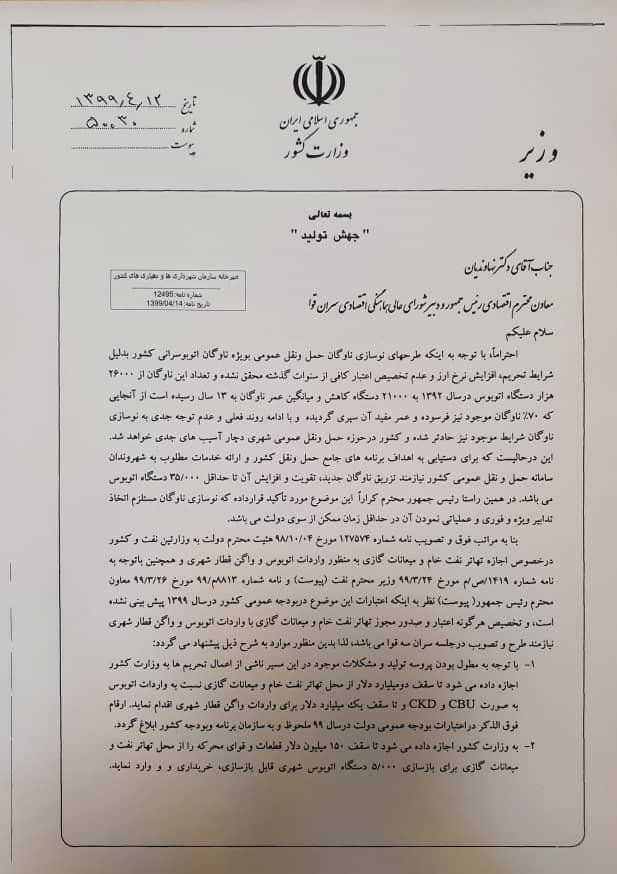 جمهوری اسلامی ایران
وزارت کشور
وزیر
تاریخ ۱۳۹۹/۴/۱۲
شماره ۵۰۰۳۰
پیوست
بسمه تعالی
"جهش تولید"
دبیرخانه سازمان شهرداری ها و دهیاری های کشور
شماره نامه: 12495
تاریخ نامه: 1399/04/14
جناب آقای دکتر نهاوندیان
معاون محترم اقتصادی رئیس جمهور و دبیر شورای عالی هماهنگی اقتصادی سران قوا
سلام علیکم
احتراماً، با توجه به اینکه طرحهای نوسازی ناوگان حمل ونقل عمومی بویژه ناوگان اتوبوسرانی کشور بدلیل
شرایط تحریم، افزایش نرخ ارز و عدم تخصیص اعتبار کافی از سنوات گذشته محقق نشده و تعداد این ناوگان از ۲۶۰۰۰
هزار دستگاه اتوبوس درسال ۱۳۹۲ به ۲۱۰۰۰ دستگاه کاهش و میانگین عمر ناوگان به ۱۳ سال رسیده است از آنجایی
که ۷۰٪ ناوگان موجود نیز فرسوده و عمر مفید آن سپری گردیده و با ادامه روند فعلی و عدم توجه جدی به نوسازی
ناوگان شرایط موجود نیز حادتر شده و کشور درحوزه حمل ونقل عمومی شهری دچار آسیب های جدی خواهد شد.
این درحالیست که برای دستیابی به اهداف برنامه های جامع حمل ونقل کشور و ارائه خدمات مطلوب به شهروندان
سامانه حمل و نقل عمومی کشور نیازمند تزریق ناوگان جدید، تقویت و افزایش آن تا حداقل ۳۵/۰۰۰ دستگاه اتوبوس
می باشد. در همین راستا رئیس جمهور محترم کراراً این موضوع مورد تأکید قرارداده که نوسازی ناوگان مستلزم اتخاذ
تدابیر ویژه و فوری و عملیاتی نمودن آن در حداقل زمان ممکن از سوی دولت می باشد.
بنا به مراتب فوق و تصویب نامه شماره ۱۲۷۵۷۴ مورخ ۹۸/۱۰/۰۴ هئیت محترم دولت به وزارتین نفت و کشور
درخصوص اجازه تهاتر نفت خام و میعانات گازی به منظور واردات اتوبوس و واگن قطار شهری و همچنین باتوجه به
نامه شماره ۱۴۱۹/ص/م مورخ ۹۹/۳/۲۴ وزیر محترم نفت (پیوست) و نامه شماره ۸۸۱۳م/۹۹ مورخ ۹۹/۳/۲۶ معاون
محترم رئیس جمهور( پیوست) نظر به اینکه اعتبارات این موضوع دربودجه عمومی کشور درسال ۱۳۹۹ پیش بینی نشده
است، و تخصیص هرگونه اعتبار و صدور مجوز تهاتر نفت خام و میعانات گازی با واردات اتوبوس و واگن قطار شهری
نیازمند طرح و تصویب درجلسه سران سه قوا می باشد، لذا بدین منظور موارد به شرح ذیل پیشنهاد می گردد:
۱- با توجه به مطول بودن پروسه تولید و مشکلات موجود در این مسیر ناشی از اعمال تحریم ها به وزارت کشور
اجازه داده می شود تا سقف دومیلیارد دلار از محل تهاتر نفت خام و میعانات گازی نسبت به واردات اتوبوس
به صورت CBU و CKD و تا سقف یک میلیارد دلار برای واردات واگن قطار شهری اقدام نماید. ارقام
فوق الذکر دراعتبارات بودجه عمومی دولت درسال ۹۹ ملحوظ و به سازمان برنامه وبودجه کشور ابلاغ گردد.
۲- به وزارت کشور اجازه داده می شود تا سقف ۱۵۰ میلیون دلار قطعات و قوای محرکه را از محل تهاتر نفت و
میعانات گازی برای بازسازی ۵/۰۰۰ دستگاه اتوبوس شهری قابل بازسازی، خریداری و و وارد نماید.